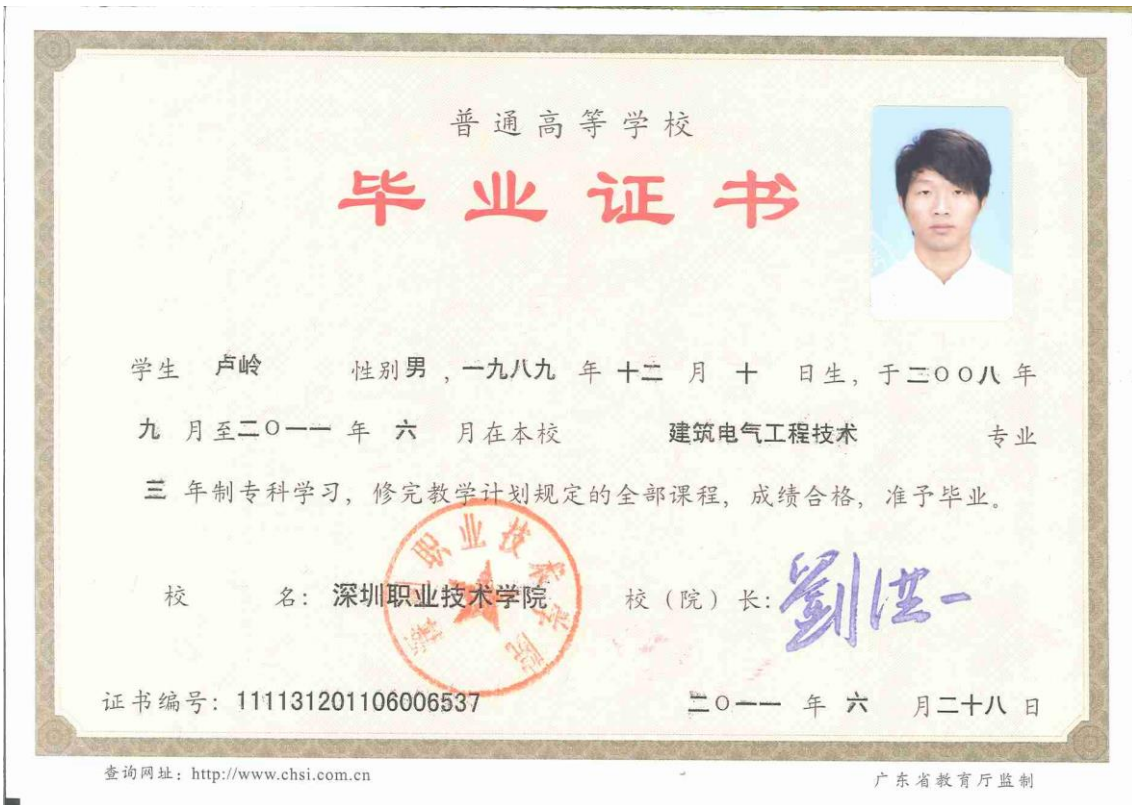 普通高等学校
毕业证书
学生 卢岭 性别男，一九八九 年 十二 月 十 日生，于二〇〇八 年
九 月至二〇一一 年 六 月在本校 建筑电气工程技术 专业
三 年制专科学习，修完教学计划规定的全部课程，成绩合格，准予毕业。
深圳职业技术学院
校 名：深圳职业技术学院 校（院）长：劉洪一
证书编号：111131201106006537 二〇一一 年 六 月二十八 日
查询网址：http://www.chsi.com.cn 广东省教育厅监制